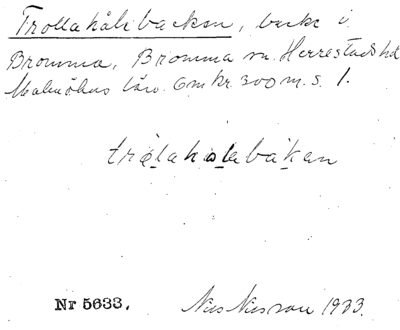 Trollahålebacken, backe i
Bromma, Bromma sn. Herrestads hd
Malmöhus län. Omkr. 300 m. s. 1.
trolaholabakan
Nr 5633. Nils Nilsson 1933.